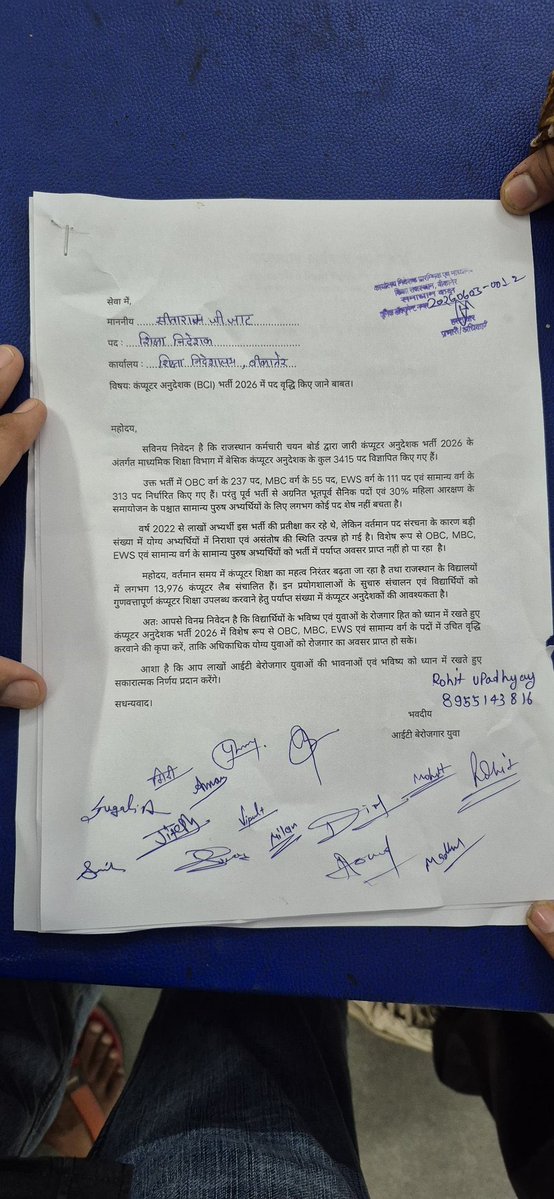 सेवा में,
माननीय ....सीताराम जी जाट................
पद : ...शिक्षा निदेशक......................
कार्यालय : ...शिक्षा निदेशालय, बीकानेर........
विषय: कंप्यूटर अनुदेशक (BCI) भर्ती 2026 में पद वृद्धि किए जाने बाबत।
कार्यालय निदेशक प्रारम्भिक एवं माध्यमिक
शिक्षा राजस्थान, बीकानेर
20260603-0012
महोदय,
सविनय निवेदन है कि राजस्थान कर्मचारी चयन बोर्ड द्वारा जारी कंप्यूटर अनुदेशक भर्ती 2026 के
अंतर्गत माध्यमिक शिक्षा विभाग में बेसिक कंप्यूटर अनुदेशक के कुल 3415 पद विज्ञापित किए गए हैं।
उक्त भर्ती में OBC वर्ग के 237 पद, MBC वर्ग के 55 पद, EWS वर्ग के 111 पद एवं सामान्य वर्ग के
313 पद निर्धारित किए गए हैं। परंतु पूर्व भर्ती से अग्रनित भूतपूर्व सैनिक पदों एवं 30% महिला आरक्षण के
समायोजन के पश्चात सामान्य पुरुष अभ्यर्थियों के लिए लगभग कोई पद शेष नहीं बचता है।
वर्ष 2022 से लाखों अभ्यर्थी इस भर्ती की प्रतीक्षा कर रहे थे, लेकिन वर्तमान पद संरचना के कारण बड़ी
संख्या में योग्य अभ्यर्थियों में निराशा एवं असंतोष की स्थिति उत्पन्न हो गई है। विशेष रूप से OBC, MBC,
EWS एवं सामान्य वर्ग के सामान्य पुरुष अभ्यर्थियों को भर्ती में पर्याप्त अवसर प्राप्त नहीं हो पा रहा है।
महोदय, वर्तमान समय में कंप्यूटर शिक्षा का महत्व निरंतर बढ़ता जा रहा है तथा राजस्थान के विद्यालयों
में लगभग 13,976 कंप्यूटर लैब संचालित हैं। इन प्रयोगशालाओं के सुचारु संचालन एवं विद्यार्थियों को
गुणवत्तापूर्ण कंप्यूटर शिक्षा उपलब्ध करवाने हेतु पर्याप्त संख्या में कंप्यूटर अनुदेशकों की आवश्यकता है।
अत: आपसे विनम्र निवेदन है कि विद्यार्थियों के भविष्य एवं युवाओं के रोजगार हित को ध्यान में रखते हुए
कंप्यूटर अनुदेशक भर्ती 2026 में विशेष रूप से OBC, MBC, EWS एवं सामान्य वर्ग के पदों में उचित वृद्धि
करवाने की कृपा करें, ताकि अधिकाधिक योग्य युवाओं को रोजगार का अवसर प्राप्त हो सके।
आशा है कि आप लाखों आईटी बेरोजगार युवाओं की भावनाओं एवं भविष्य को ध्यान में रखते हुए
सकारात्मक निर्णय प्रदान करेंगे।
सधन्यवाद।
Rohit upadhyay
8955143816
भवदीय
आईटी बेरोजगार युवा
गिर्री
Aman
Jitesh
Vipul
Milan
Mohit
Rohit
Madhu